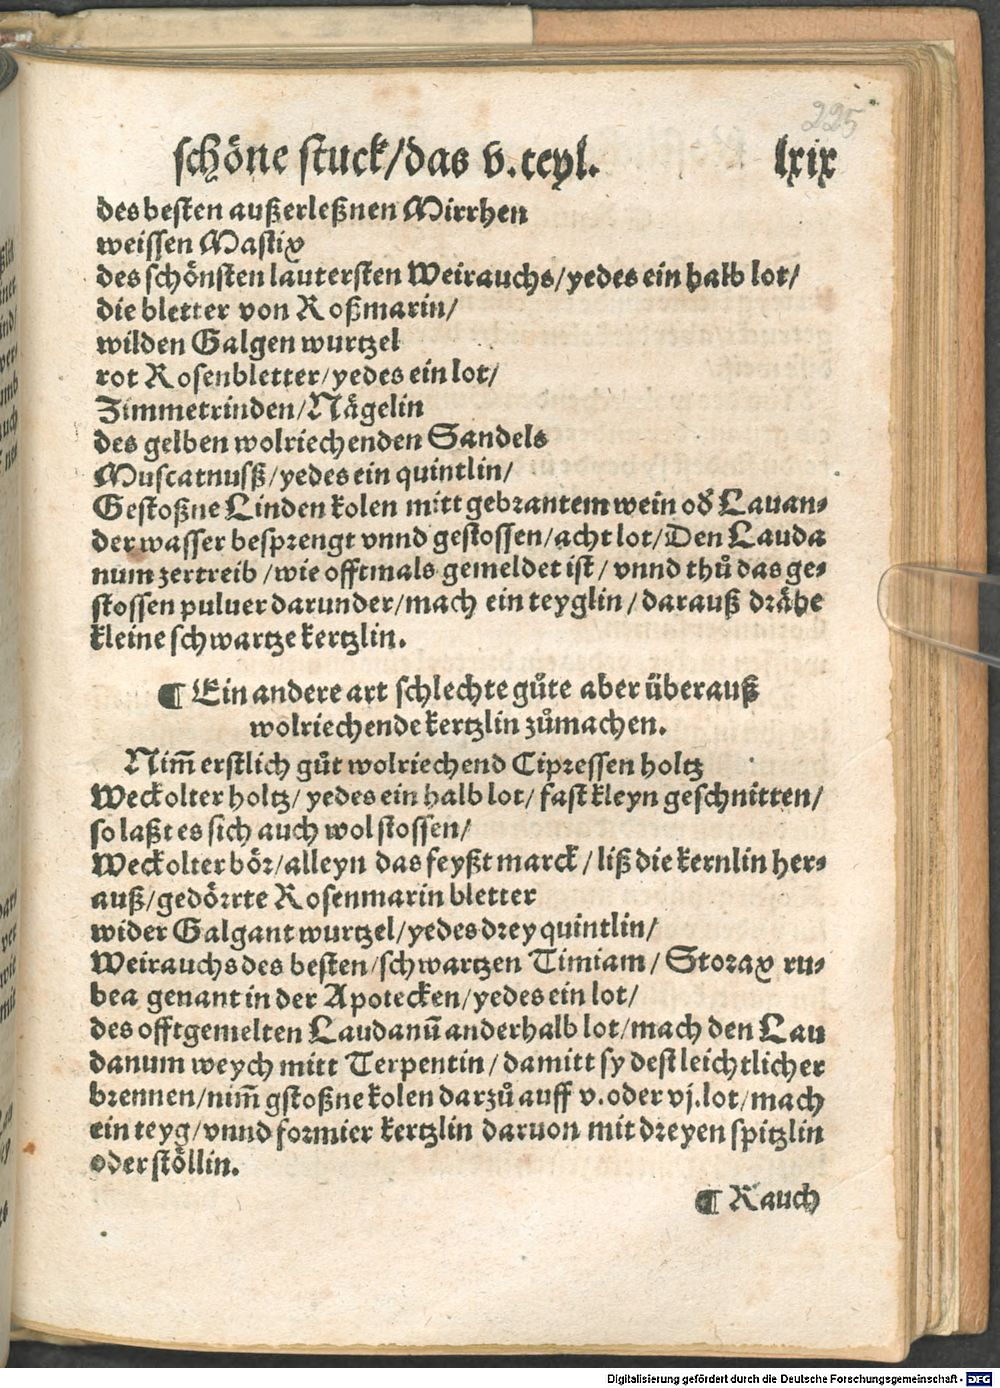 225
schöne stuck/das v.teyl. lxix
des besten außerleßnen Mirrhen
weissen Mastix
des schönsten lautersten Weirauchs/yedes ein halb lot/
die bletter von Roßmarin/
wilden Galgen wurtzel
rot Rosenbletter/yedes ein lot/
Zimmetrinden/Nägelin
des gelben wolriechenden Sandels
Muscatnusß/yedes ein quintlin/
Gestoßne Linden kolen mitt gebrantem wein od̕ Lauan⸗
der wasser besprengt vnnd gestossen/acht lot/Den Lauda
num zertreib/wie offtmals gemeldet ist/vnnd thů das ge⸗
stossen puluer darunder/mach ein teyglin/darauß drähe
kleine schwartze kertzlin.
¶ Ein andere art schlechte gůte aber überauß
wolriechende kertzlin zůmachen.
Nim̄ erstlich gůt wolriechend Cipressen holtz
Weckolter holtz/yedes ein halb lot/fast kleyn geschnitten/
so laßt es sich auch wol stossen/
Weckolter bör/alleyn das feyßt marck/liß die kernlin her⸗
auß/gedörrte Rosenmarin bletter
wider Galgant wurtzel/yedes drey quintlin/
Weirauchs des besten/schwartzen Timiam/Storax ru⸗
bea genant in der Apotecken/yedes ein lot/
des offtgemelten Laudanū anderhalb lot/mach den Lau
danum weych mitt Terpentin/damitt sy dest leichtlicher
brennen/nim̄ gstoßne kolen darzů auff v.oder vj.lot/mach
ein teyg/vnnd formier kertzlin daruon mit dreyen spitzlin
oder stöllin.
¶ Rauch
Digitalisierung gefördert durch die Deutsche Forschungsgemeinschaft - DFG